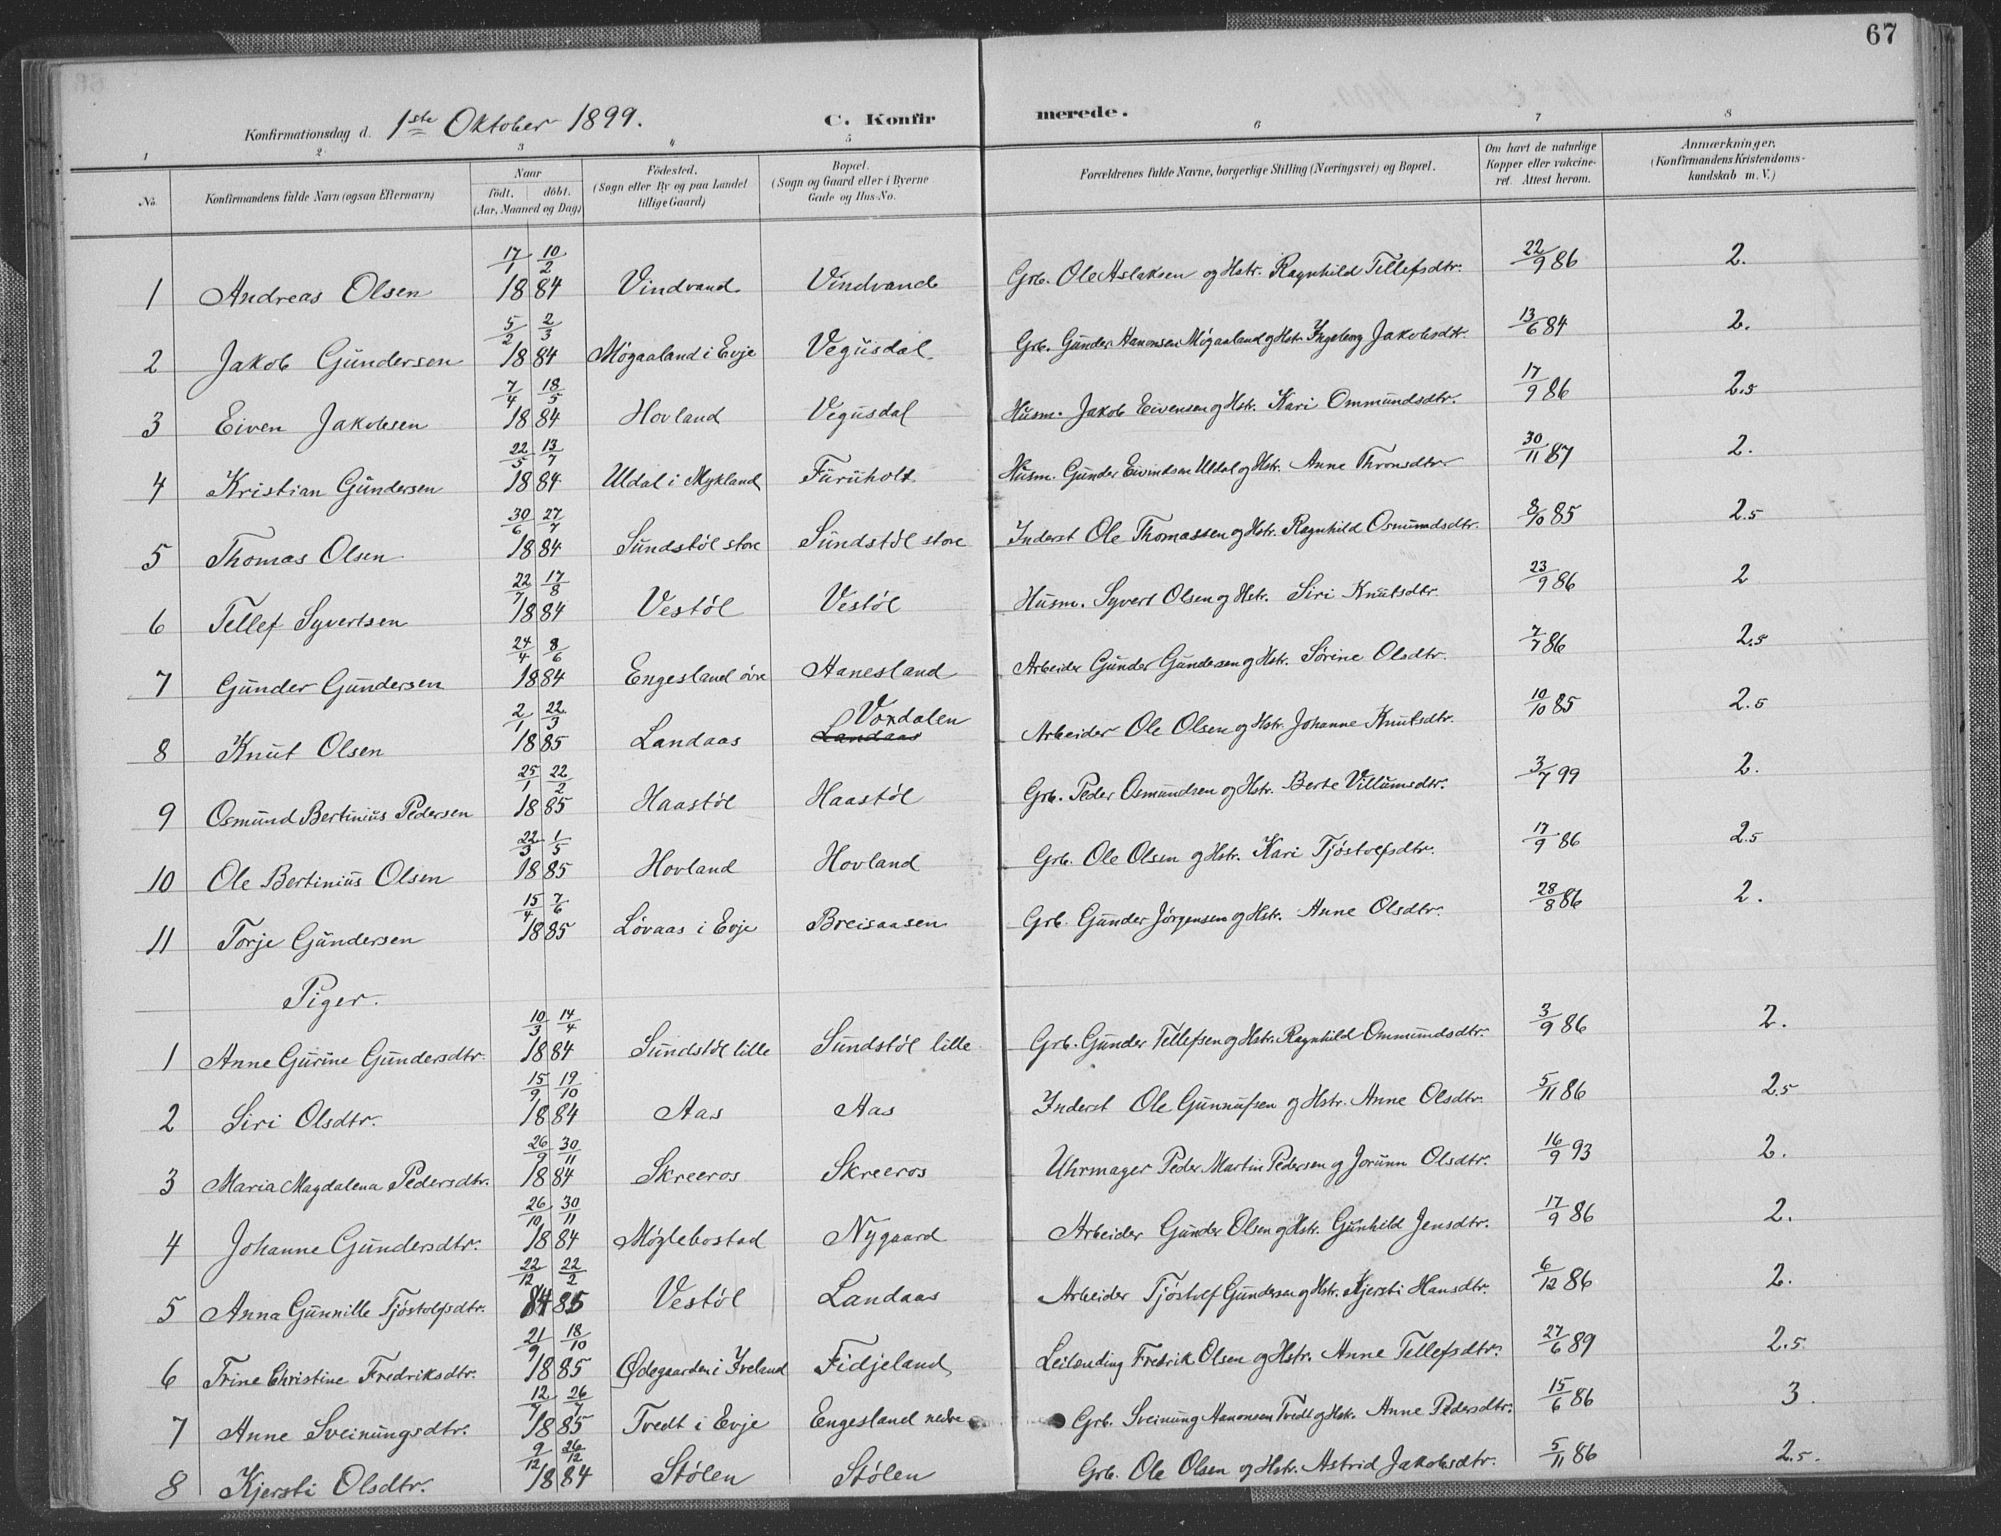 67
Konfirmationsdag d. 1ste Oktober 1899. C. Konfirmerede.
1 2 3 4 5 6 7 8
No. Konfirmandens fulde Navn (ogsaa Efternavn) Naar født. døbt. (Aar, Maaned og Dag) Fødested. (Sogn eller By og paa Landet tillige Gaard) Bopæl. (Sogn og Gaard eller i Byerne Gade og Hus-No. Forældrenes fulde Navne, borgerlige Stilling (Næringsvei) og Bopæl. Om havt de naturlige Kopper eller vakcineret. Attest herom. Anmærkninger. (Konfirmandens Kristendomskundskab m. V.)
1 Andreas Olsen 17/1 10/2 1884 Vindvand Vindvand Grb. Ole Aslaksen og Hstr. Ragnhild Tellefsdtr. 22/9 86 2.
2 Jakob Gundersen 5/2 2/3 1884 Møgaaland i Evje Vegusdal Grb. Gunder Aanonsen Møgaaland og Hstr. Ingeborg Jakobsdtr. 13/6 84 2.
3 Eiven Jakobsen 7/4 18/5 1884 Hovland Vegusdal Husm. Jakob Eivensen og Hstr. Kari Ommundsdtr. 17/9 86 2.5
4 Kristian Gundersen 22/5 13/7 1884 Uldal i Mykland Furuholt Husm. Gunder Eivindsen Uldal og Hstr. Anne Thronsdtr. 30/11 87 2.
5 Thomas Olsen 30/6 27/7 1884 Sundstøl store Sundstøl store Inderst Ole Thomassen og Hstr. Ragnhild Osmundsdtr. 8/10 85 2.5
6 Tellef Syvertsen 22/7 17/8 1884 Vestøl Vestøl Husm. Syvert Olsen og Hstr. Siri Knutsdtr. 23/9 86 2
7 Gunder Gundersen 24/4 8/6 1884 Engesland øvre Hanesland Arbeider Gunder Gundersen og Hstr. Sørine Olsdtr. 7/7 86 2.5
8 Knut Olsen 2/1 22/3 1885 Landaas Landaas Vordalen Arbeider Ole Olsen og Hstr. Johanne Knutsdtr. 10/10 85 2.5
9 Osmund Bertinius Pedersen 25/1 22/2 1885 Haastøl Haastøl Grb. Peder Osmundsen og Hstr. Berte Villumsdtr. 3/7 99 2.
10 Ole Bertinius Olsen 22/3 1/5 1885 Hovland Hovland Grb. Ole Olsen og Hstr. Kari Tjøstolfsdtr. 17/9 86 2.5
11 Torje Gundersen 15/4 7/6 1885 Løvaas i Evje Breisaasen Grb. Gunder Jørgensen og Hstr. Anne Olsdtr. 28/8 86 2.
Piger.
1 Anne Gurine Gundersdtr. 10/3 14/4 1884 Sundstøl lille Sundstøl lille Grb. Gunder Tellefsen og Hstr. Ragnhild Ommundsdtr. 3/9 86 2.
2 Siri Olsdtr. 15/9 19/10 1884 Aas Aas Inderst Ole Gunnufsen og Hstr. Anne Olsdtr. 5/11 86 2.5
3 Maria Magdalena Pedersdtr. 26/9 30/11 1884 Skreeros Skreeros Uhrmager Peder Martin Pedersen og Jorunn Olsdtr. 16/9 93 2.
4 Johanne Gundersdtr. 26/10 30/11 1884 Møglebostad Nygaard Arbeider Gunder Olsen og Hstr. Gunhild Jensdtr. 17/9 86 2.
5 Anna Gunnille Tjøstolfsdtr. 22/12 22/2 84 85 Vestøl Landaas Arbeider Tjøstolf Gundersen og Hstr. Kjersti Hansdtr. 6/12 86 2.
6 Trine Christine Fredriksdtr. 21/9 18/10 1885 Ødegaarden i Iveland Fidjeland Leilending Fredrik Olsen og Hstr. Anne Tellefsdtr. 27/6 89 2.5.
7 Anne Sveinungsdtr. 12/7 26/7 1885 Tvedt i Evje Engesland nedre Grb. Sveinung Aanonsen Tvedt og Hstr. Anne Pedersdtr. 15/6 86 3.
8 Kjersti Olsdtr. 9/12 26/12 1884 Stølen Stølen Grb. Ole Olsen og Hstr. Astrid Jakobsdtr. 5/11 86 2.5.